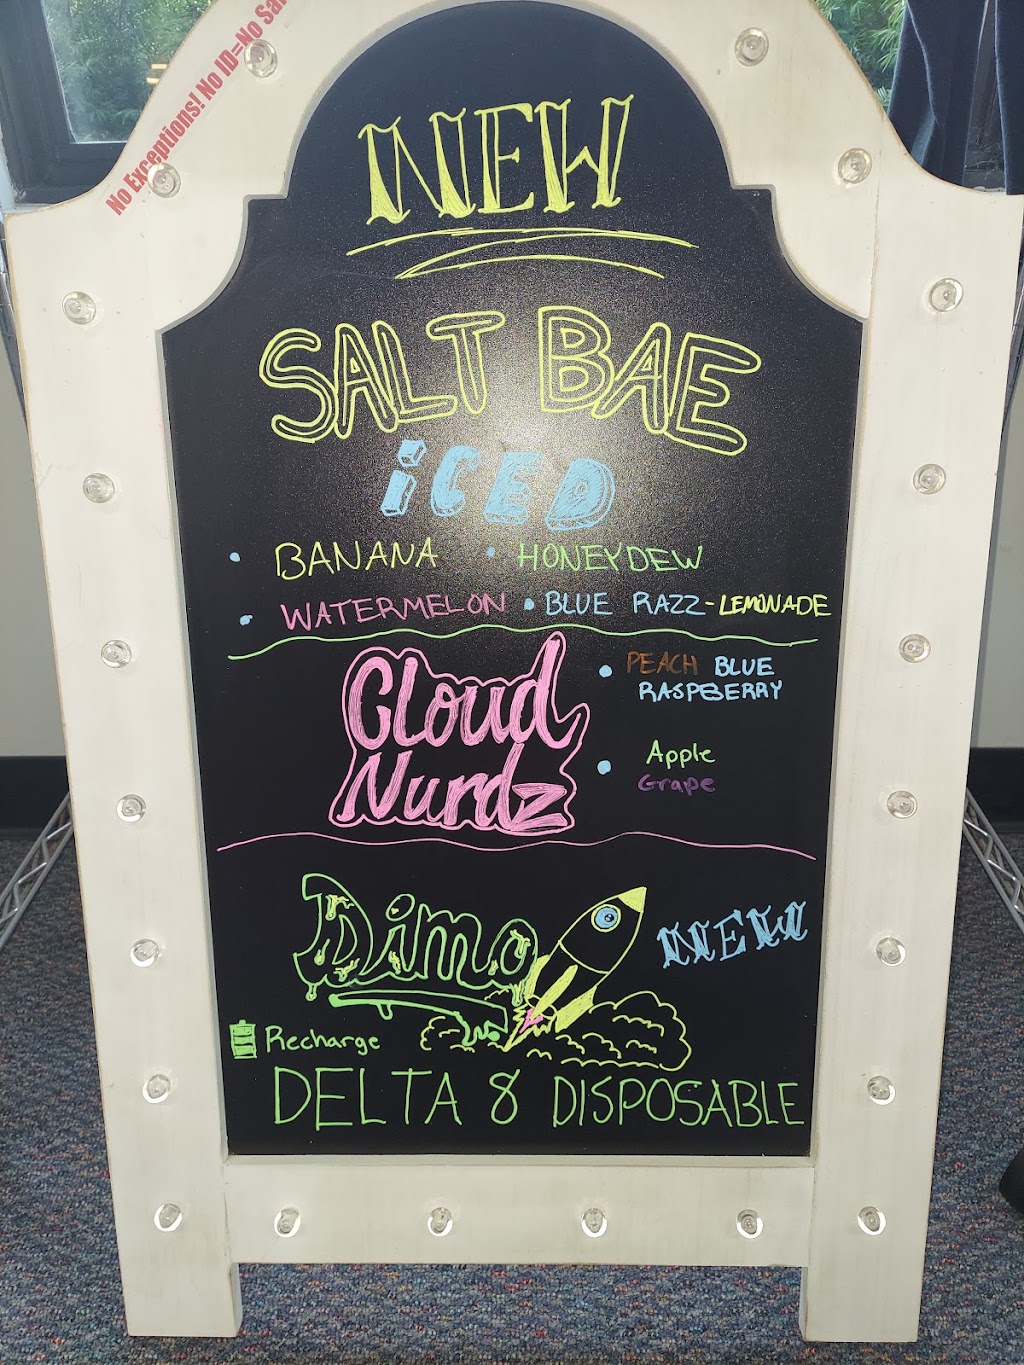 No Exceptions! No ID=No
NEW
SALT BAE
iCED
• BANANA • HONEYDEW
• WATERMELON • BLUE RAZZ-LEMONADE
Cloud
Nurdz
• PEACH BLUE
RASPBERRY
• Apple
Grape
Dimo
NEW
Recharge
DELTA 8 DISPOSABLE